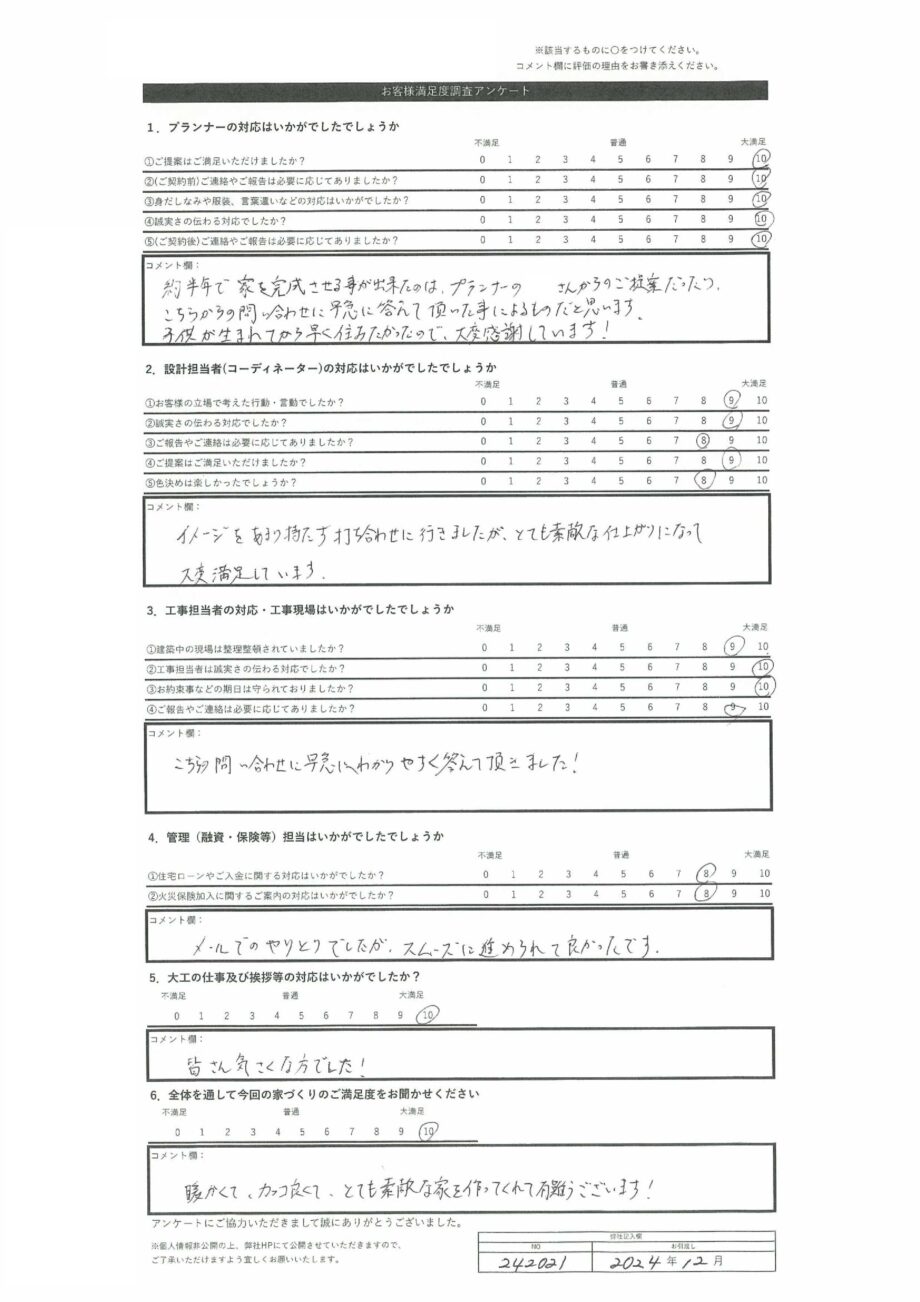 ※該当するものに〇をつけてください。
コメント欄に評価の理由をお書き添えください。
お客様満足度調査アンケート
1．プランナーの対応はいかがでしたでしょうか
不満足 普通 大満足
①ご提案はご満足いただけましたか？ 0 1 2 3 4 5 6 7 8 9 10
②(ご契約前)ご連絡やご報告は必要に応じてありましたか？ 0 1 2 3 4 5 6 7 8 9 10
③身だしなみや服装、言葉遣いなどの対応はいかがでしたか？ 0 1 2 3 4 5 6 7 8 9 10
④誠実さの伝わる対応でしたか？ 0 1 2 3 4 5 6 7 8 9 10
⑤(ご契約後)ご連絡やご報告は必要に応じてありましたか？ 0 1 2 3 4 5 6 7 8 9 10
コメント欄：
約半年で家を完成させる事が出来たのは、プランナーの さんからのご提案だったり、
こちらからの問い合わせに早急に答えて頂いた事によるものだと思います。
子供が生まれてから早く住みたかったので、大変感謝しています！
2．設計担当者(コーディネーター)の対応はいかがでしたでしょうか
不満足 普通 大満足
①お客様の立場で考えた行動・言動でしたか？ 0 1 2 3 4 5 6 7 8 9 10
②誠実さの伝わる対応でしたか？ 0 1 2 3 4 5 6 7 8 9 10
③ご報告やご連絡は必要に応じてありましたか？ 0 1 2 3 4 5 6 7 8 9 10
④ご提案はご満足いただけましたか？ 0 1 2 3 4 5 6 7 8 9 10
⑤色決めは楽しかったでしょうか？ 0 1 2 3 4 5 6 7 8 9 10
コメント欄：
イメージをあまり持たず打ち合わせに行きましたが、とても素敵な仕上がりになって
大変満足しています。
3．工事担当者の対応・工事現場はいかがでしたでしょうか
不満足 普通 大満足
①建築中の現場は整理整頓されていましたか？ 0 1 2 3 4 5 6 7 8 9 10
②工事担当者は誠実さの伝わる対応でしたか？ 0 1 2 3 4 5 6 7 8 9 10
③お約束事などの期日は守られておりましたか？ 0 1 2 3 4 5 6 7 8 9 10
④ご報告やご連絡は必要に応じてありましたか？ 0 1 2 3 4 5 6 7 8 9 10
コメント欄：
こちらの問い合わせに早急に、わかりやすく答えて頂きました！
4．管理（融資・保険等）担当はいかがでしたでしょうか
不満足 普通 大満足
①住宅ローンやご入金に関する対応はいかがでしたか？ 0 1 2 3 4 5 6 7 8 9 10
②火災保険加入に関するご案内の対応はいかがでしたか？ 0 1 2 3 4 5 6 7 8 9 10
コメント欄：
メールでのやりとりでしたが、スムーズに進められて良かったです。
5．大工の仕事及び挨拶等の対応はいかがでしたか？
不満足 普通 大満足
0 1 2 3 4 5 6 7 8 9 10
コメント欄：
皆さん気さくな方でした！
6．全体を通して今回の家づくりのご満足度をお聞かせください
不満足 普通 大満足
0 1 2 3 4 5 6 7 8 9 10
コメント欄：
暖かくて、カッコ良くて、とても素敵な家を作ってくれて有難うございます！
アンケートにご協力いただきまして誠にありがとうございました。
※個人情報非公開の上、弊社HPにて公開させていただきますので、
ご了承いただけますよう宜しくお願いいたします。
弊社記入欄
NO お引渡し
242021 2024年12月